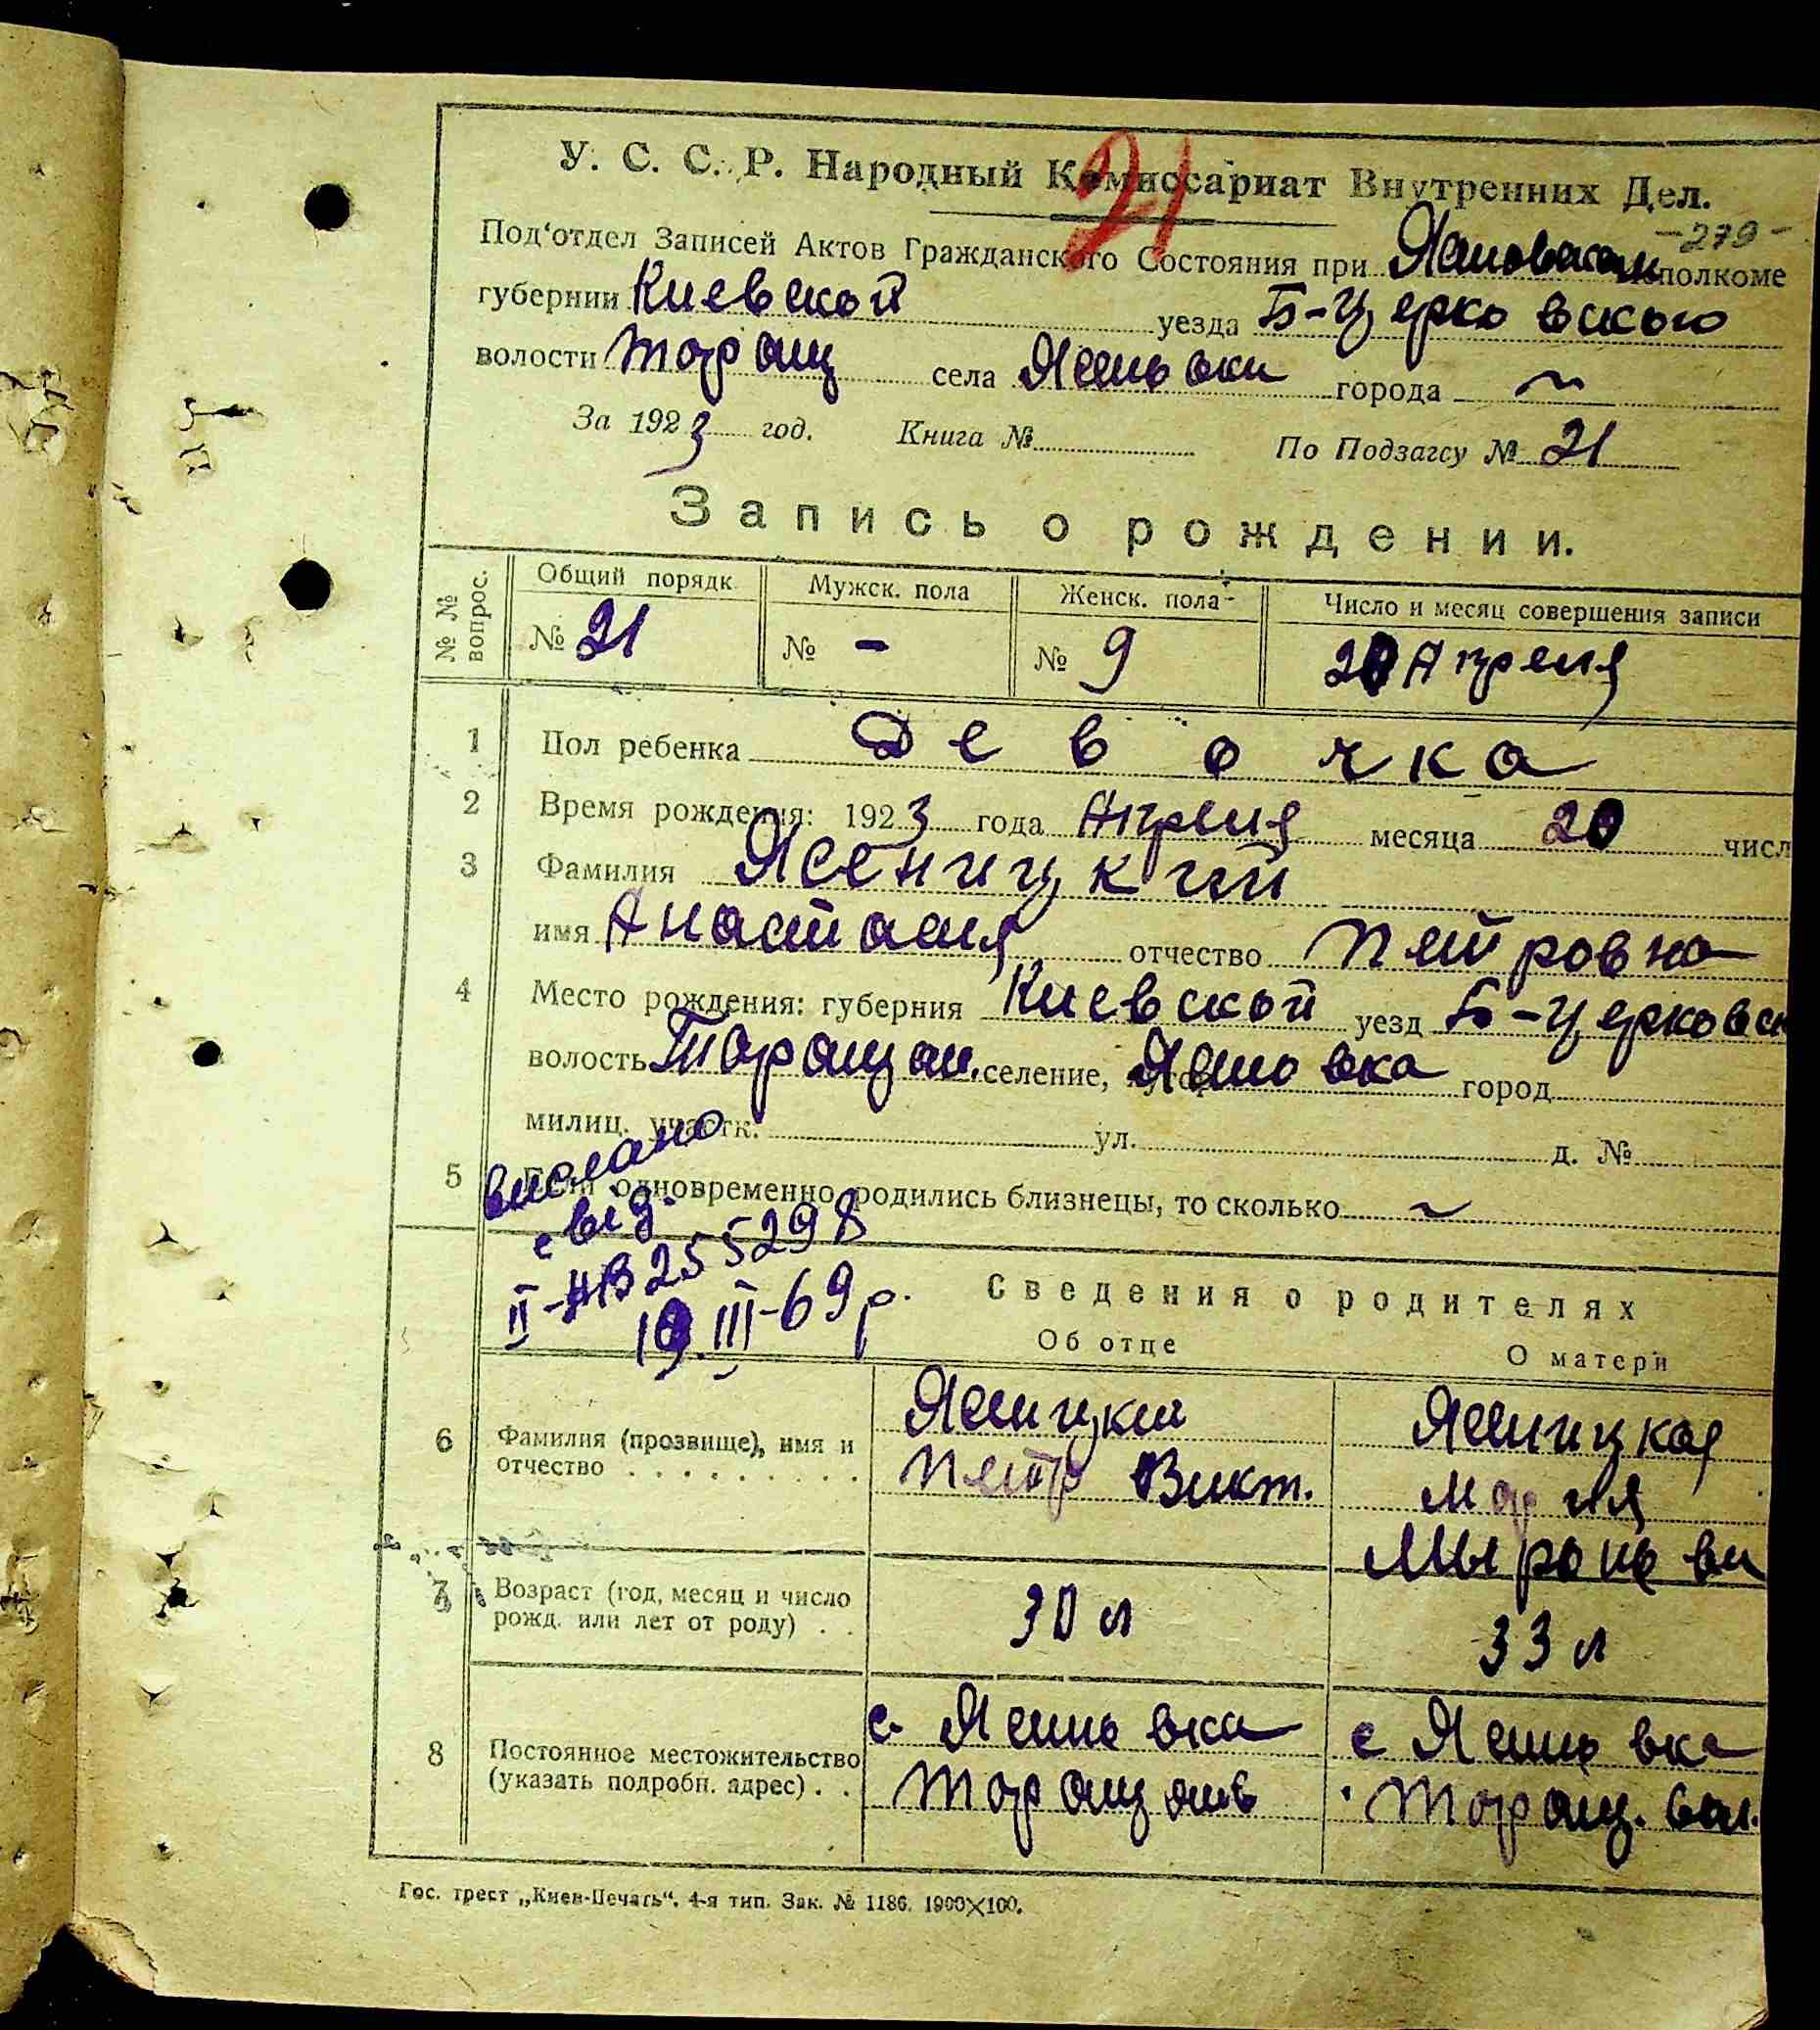 21
У. С. С. Р. Народный Комиссариат Внутренних Дел.
-279-
Под'отдел Записей Актов Гражданского Состояния при исполкоме
губернии Киевской уезда Б-Церковского
волости Таращ села Ясеновки города ~
За 1923 год. Книга № По Подзагсу № 21
Запись о рождении.
№№ вопрос. Общий порядк. Мужск. пола Женск. пола Число и месяц совершения записи
№ 21 № - № 9 20 Апреля
1 Пол ребенка Девочка
2 Время рождения: 1923 года Апреля месяца 20 числ
3 Фамилия Ясеницкий
имя Анастасия отчество Петровна
4 Место рождения: губерния Киевской уезд Б-Церковск
волость Таращан. селение, Ясеновка город
милиц. участк. ул. д. №
5 Если одновременно родились близнецы, то сколько ~
вислано
свід.
II-АВ 255298
19.III-69 р.
Сведения о родителях
Об отце О матери
6 Фамилия (прозвище), имя и отчество Ясеницкий Ясеницкая
Петр Викт. Мария
Мироновн
7 Возраст (год, месяц и число рожд. или лет от роду) 30 л 33 л
8 Постоянное местожительство (указать подробн. адрес) с. Ясеновка с Ясеновка
Таращ. вол.
Гос. трест „Киев-Печать“. 4-я тип. Зак. № 1186. 1900×100.